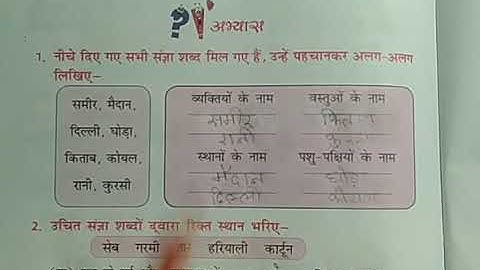 अभ्यास
1. नीचे दिए गए सभी संज्ञा शब्द मिल गए हैं, उन्हें पहचानकर अलग-अलग
लिखिए–
समीर, मैदान,
दिल्ली, घोड़ा,
किताब, कोयल,
रानी, कुरसी
व्यक्तियों के नाम
समीर
रानी
वस्तुओं के नाम
स्थानों के नाम
मैदान
दिल्ली
पशु-पक्षियों के नाम
2. उचित संज्ञा शब्दों द्वारा रिक्त स्थान भरिए–
सेब गरमी हरियाली कार्टून